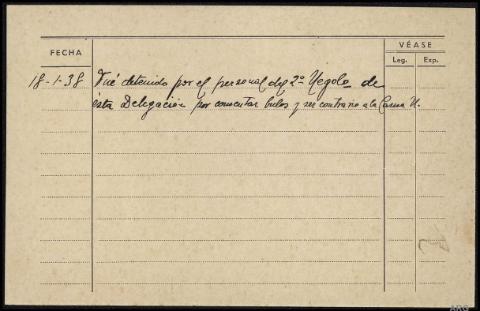 FECHA
VÉASE
Leg. Exp.
18-1-38 Fué detenido por el personal del 2º Negdo de
esta Delegación por comentar bulos y ser contrario a la Causa N.
ARG